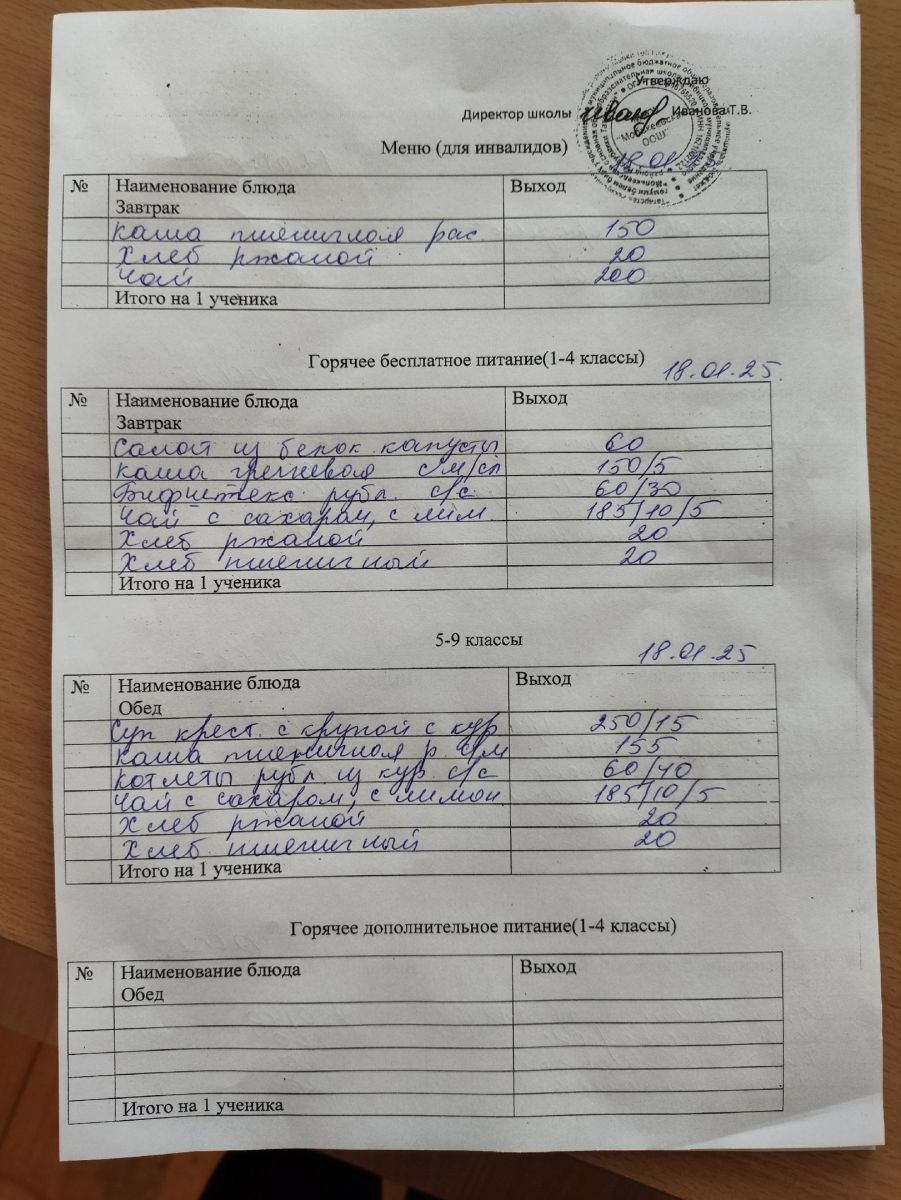 Утверждаю
Директор школы Иванова Т.В.
Меню (для инвалидов) 18.01.
№ Наименование блюда Выход
Завтрак
каша пшеничная рас. 150
Хлеб ржаной 20
Чай 200
Итого на 1 ученика
Горячее бесплатное питание(1-4 классы) 18.01.25.
№ Наименование блюда Выход
Завтрак
Салат из белок капусты 60
каша гречневая с м/сл 150/5
Бифштекс рубл. с/с 60/30
Чай с сахаром, с лим. 185/10/5
Хлеб ржаной 20
Хлеб пшеничный 20
Итого на 1 ученика
5-9 классы 18.01.25
№ Наименование блюда Выход
Обед
Суп крест. с крупой с кур 250/15
каша пшеничная р. с/м 155
котлеты рубл из кур с/с 60/40
Чай с сахаром, с лимон. 185/10/5
Хлеб ржаной 20
Хлеб пшеничный 20
Итого на 1 ученика
Горячее дополнительное питание(1-4 классы)
№ Наименование блюда Выход
Обед
Итого на 1 ученика